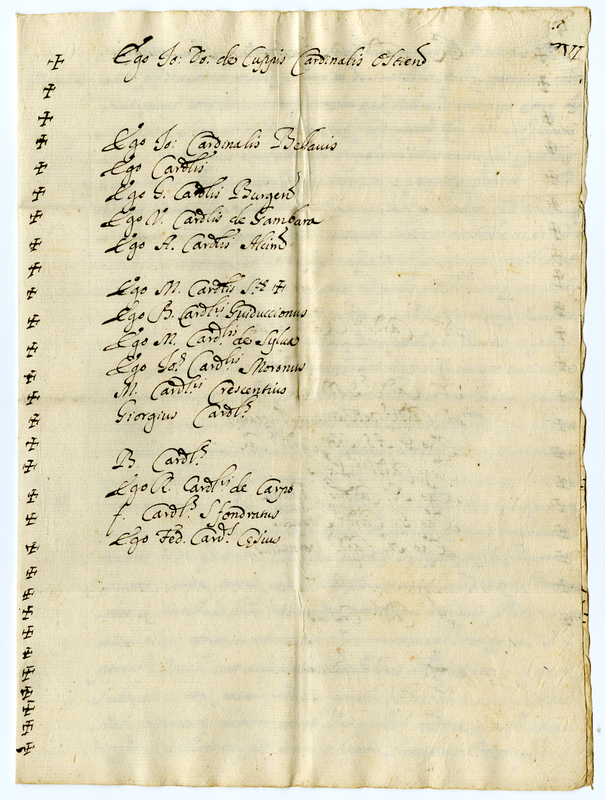 Ego Jo: Do: de Cuppis Cardinalis Ostien̄
Ego Jo: Cardinalis Bellaius
Ego Cardlis
Ego G. Cardlis Burgen̄
Ego V. Cardlis de Gambara
Ego A. Cardlis
Ego M. Cardlis S.tae ✠
Ego B. Cardlis Guiduccionus
Ego M. Cardlis de Sylva
Ego Jo. Cardlis Moronus
M. Cardlis Crescentius
Giorgius Cardlis
B. Cardlis
Ego R. Cardlis de Carpo
f. Cardlis Sfondratus
Ego Fed. Cardlis Cęsius